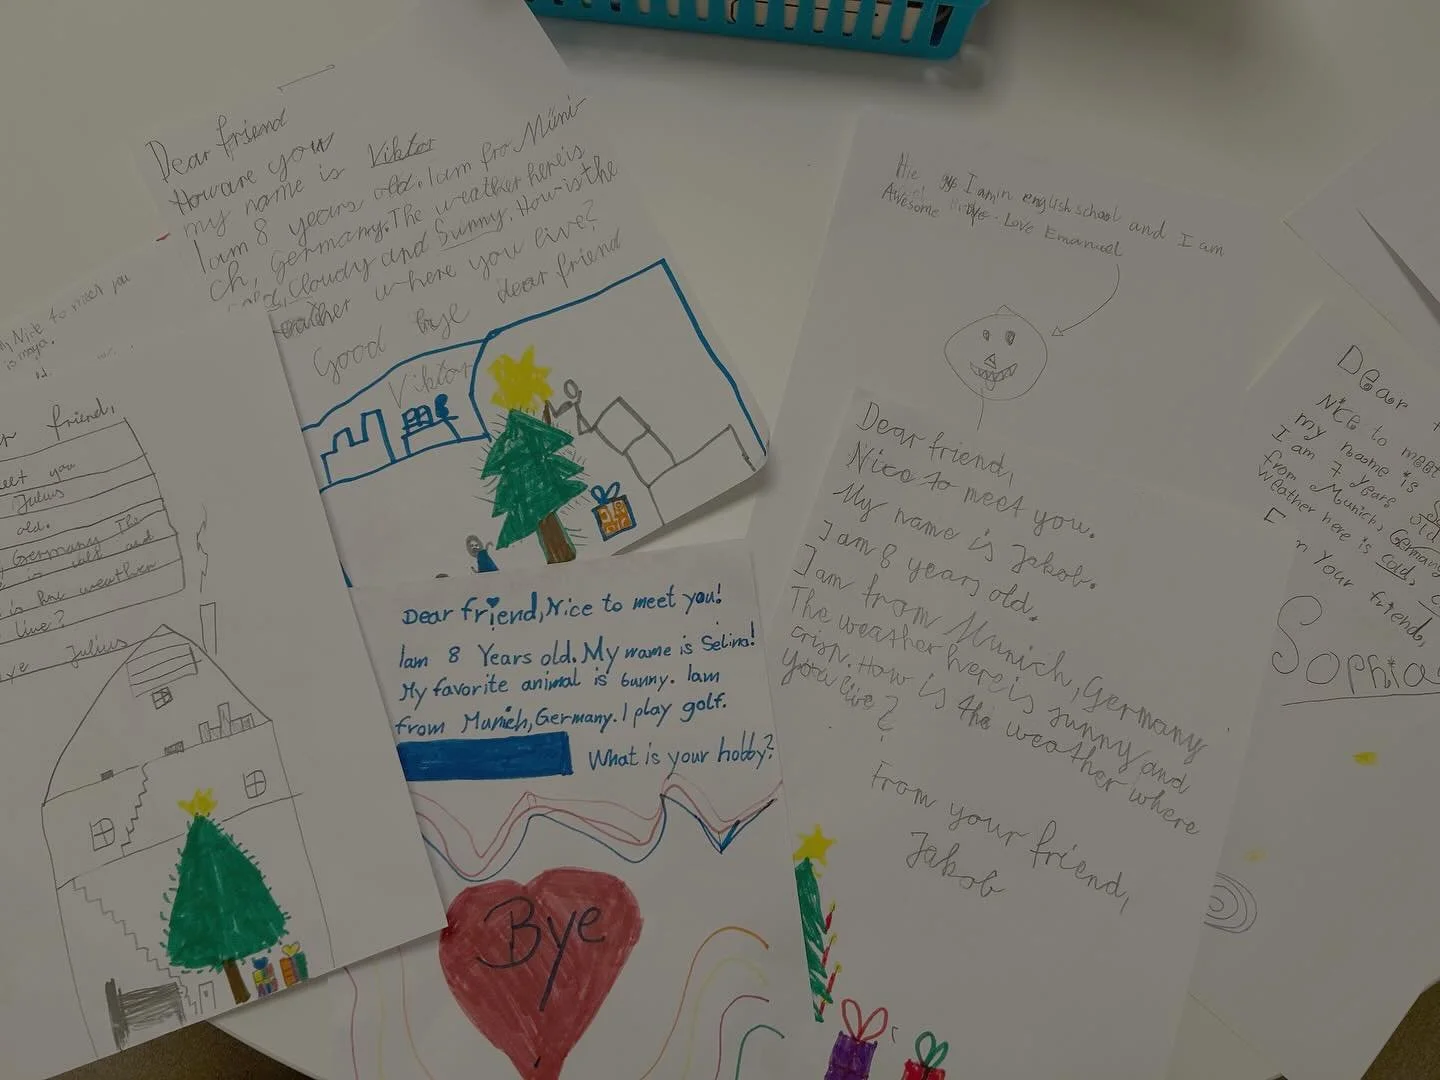 Dear friend
How are you
my name is Viktor
I am 8 years old. I am fro Müni-
ch, Germany. The weather here is
Cloudy and Sunny. How is the
weather where you live?
Good bye dear friend
Viktor
Nice to meet you
is maya.
friend,
meet you
Julius
old.
Germany The
is cold and
is he weather
live?
Bye Julius
Dear friend, Nice to meet you!
I am 8 Years old. My name is Selina!
My favorite animal is bunny. I am
from Munich, Germany. I play golf.
What is your hobby?
Bye
Hie I am in english school and I am
Awesome Bye. Love Emanuel
Dear friend,
Nice to meet you.
My name is Jakob.
I am 8 years old.
I am from Munich, Germany
The weather here is sunny and
crisp. How is the weather where
you live?
From your friend,
Jakob
Dear
Nice to meet
my name is
I am 7 years old
from Munich, Germany
weather here is cold,
Your friend,
Sophia